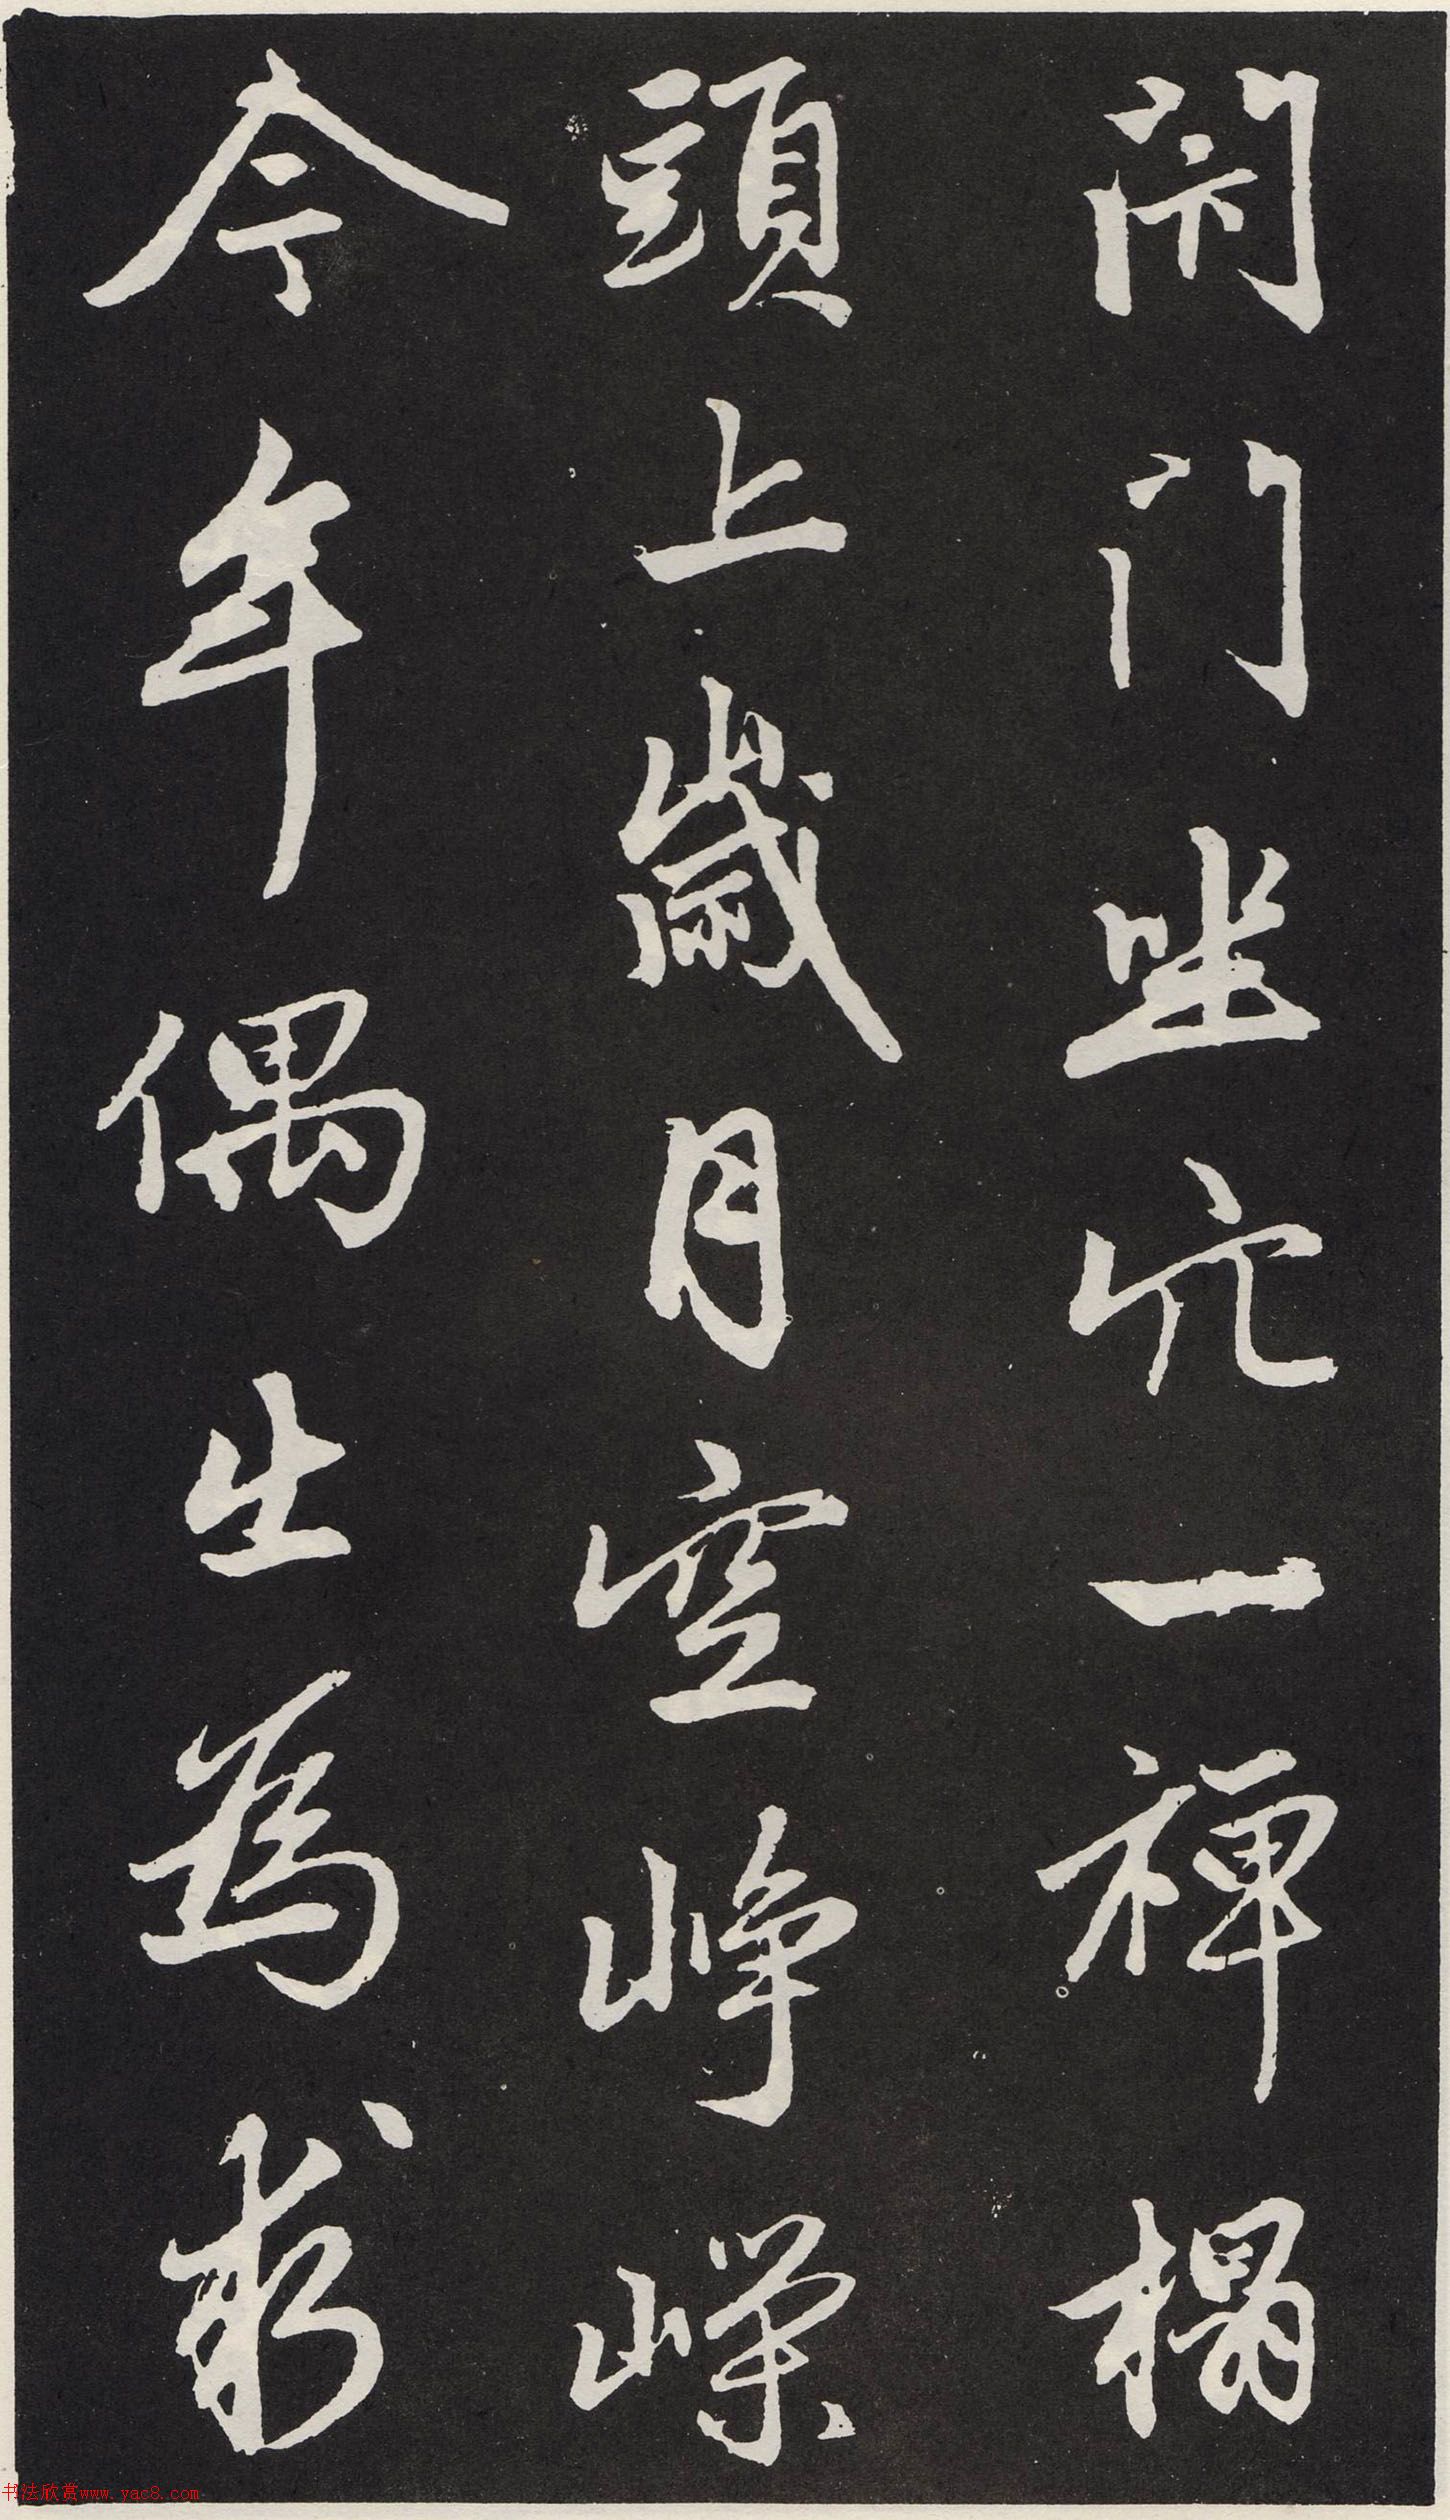 閉門坐穴一禅榻
頭上歲月空崢嶸
今年偶出為求
书法欣赏www.yac8.com